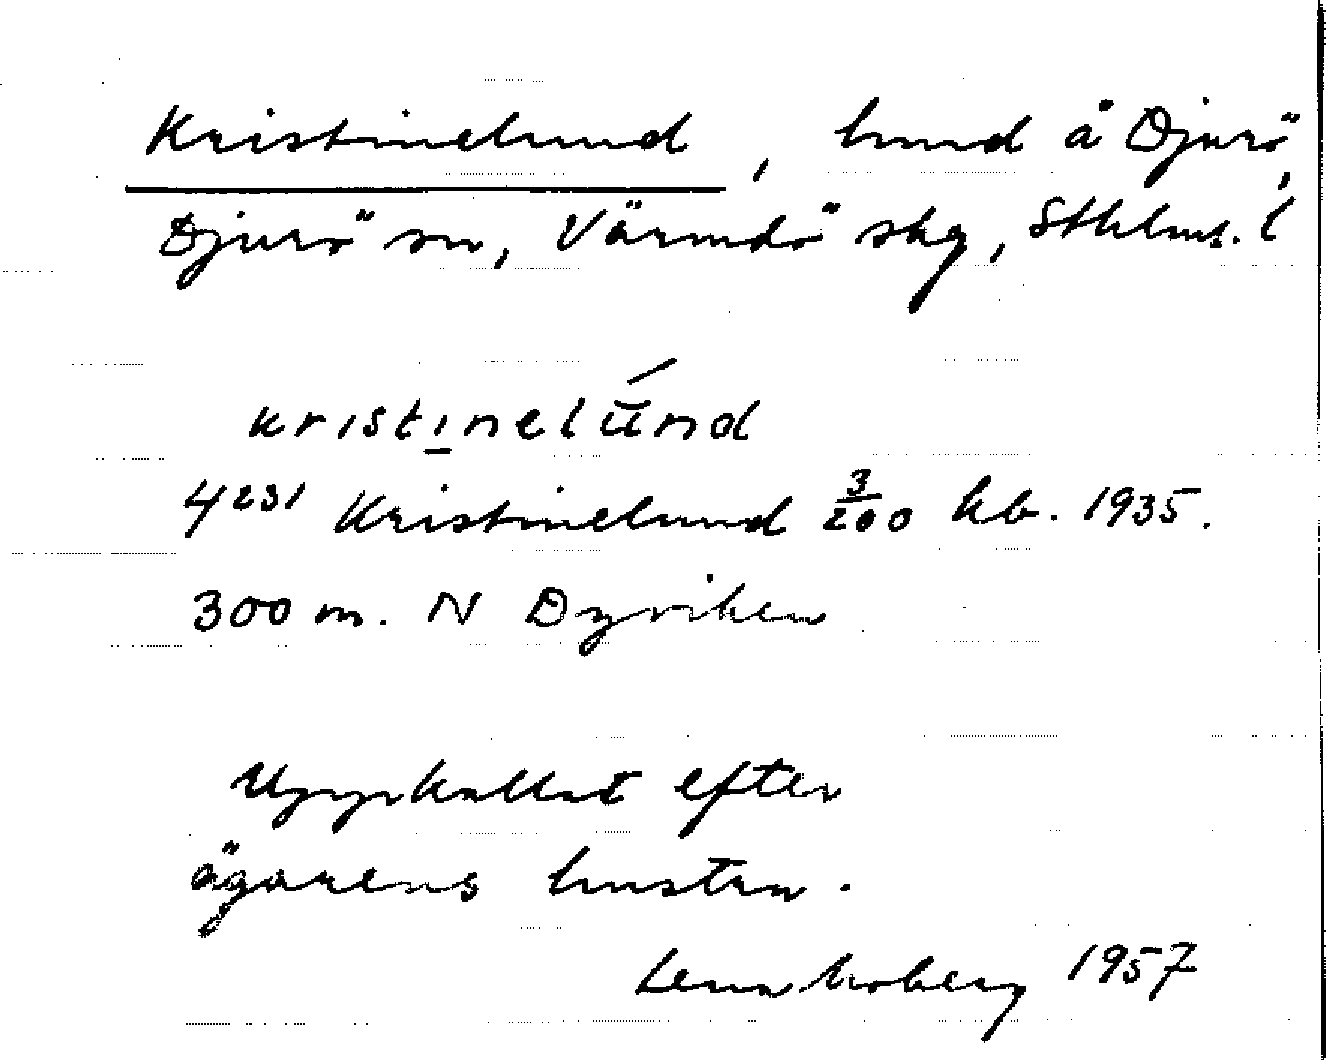 Kristinelund, hmd å Djurö,
Djurö sn, Värmdö skg, Sthlms. l
kristinelu̅́nd
4231 Kristinelund 3/200 kb. 1935.
300 m. N Dyviken
Uppkallat efter
ägarens hustru.
Lena Moberg 1957